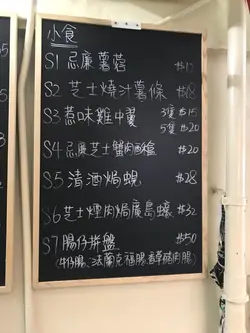 小食
S1 忌廉薯蓉 #12
S2 芝士燒汁薯條 #18
S3 惹味雞中翼 3隻 #15
5隻 #20
S4 忌廉芝士蟹肉西蘭 #20
S5 清酒焗蜆 #28
S6 芝士煙肉焗廣島蠔 #32
S7 腸仔拼盤 #50
(牛仔腸、法蘭克福腸、香草豬肉腸)